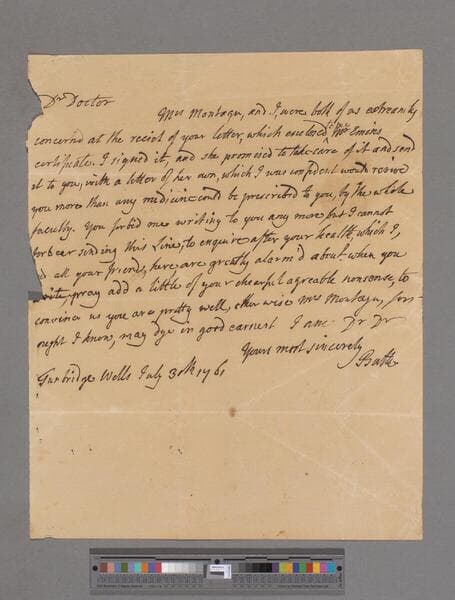 Dr Doctor
Mrs Montagu, and I, were both of us extreamly
concerned at the reciet of your letter, which enclosed to me Mr Emins
certificate. I signed it, and she promised to take care of it and send
it to you, with a letter of her own, which I was confident would revive
you more than any medicine could be prescribed to you, by the whole
faculty. You forbid me writing to you any more but I cannot
forbear sending this Line, to enquire after your health, which I,
and all your friends, here are greatly alarm'd about when you
write, pray add a little of your cheerful agreable nonsense, to
convince us you are pretty well, other wise Mrs Montagu, for
ought I know, may dye in good earnest I am Dr Dr
Yours most sincerely
Bath
Tunbridge Wells July 30th 1761